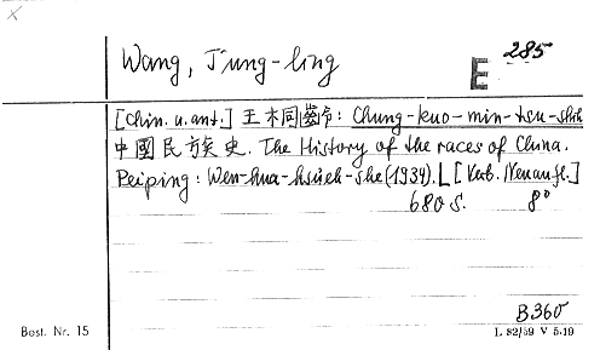 Wang, T'ung-ling
E 285
[Chin. u. ant.] 王桐齡: Chung-kuo-min-tsu-shih
中國民族史. The History of the races of China.
Peiping: Wen-hua-hsüeh-she (1934). [Verb. Neuaufl.]
680 S. 8°
B360
Best. Nr. 15
L 82/59 V 5.19